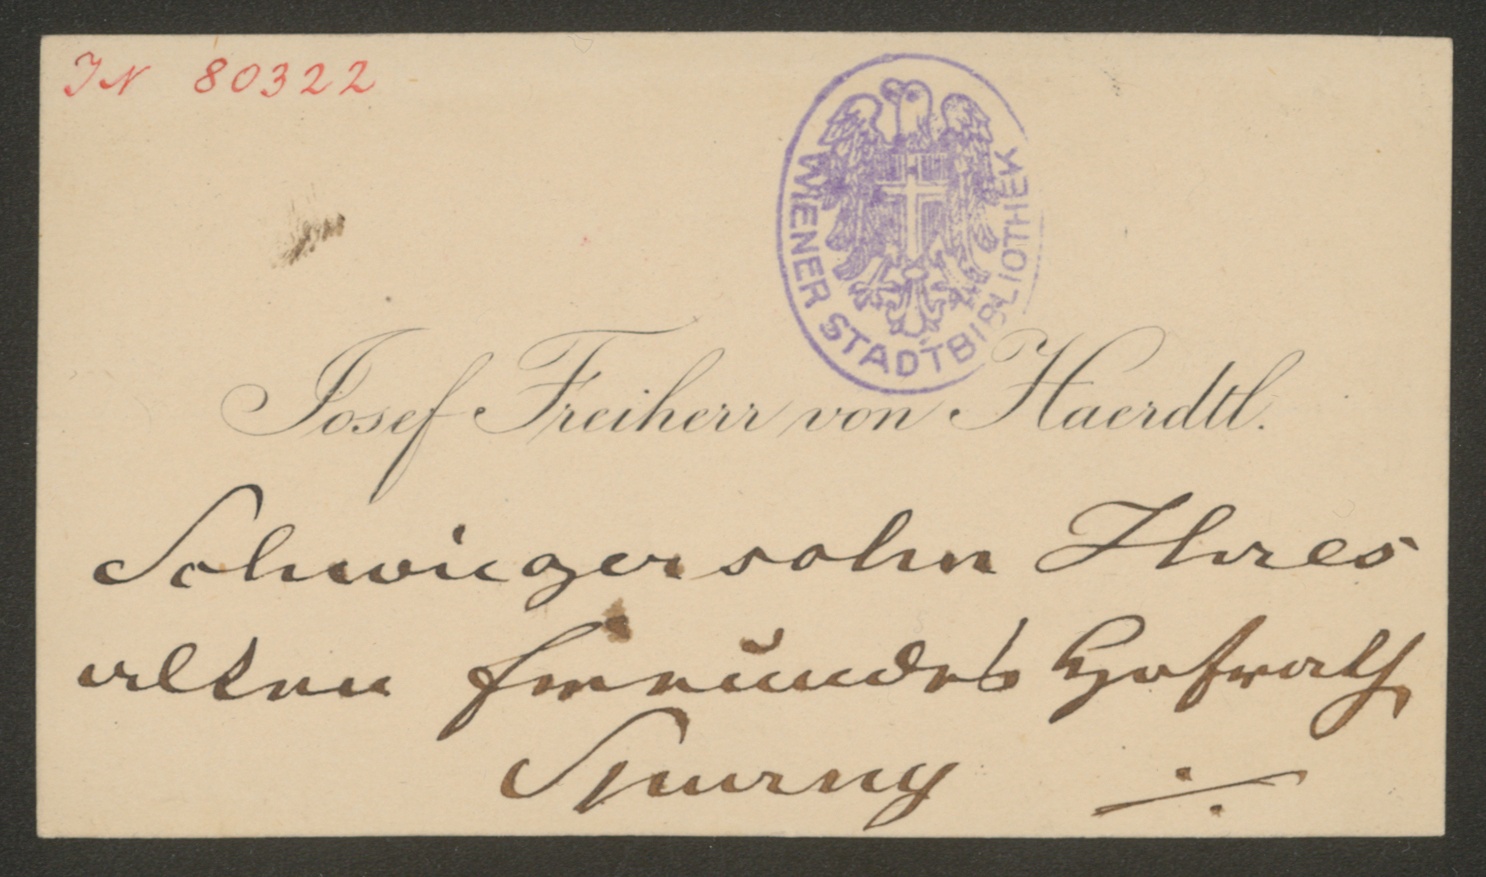 IN 80322
WIENER STADTBIBLIOTHEK
Josef Freiherr von Haerdtl.
Schwiegersohn Ihres
alten Freundes Hofrath
Spurny